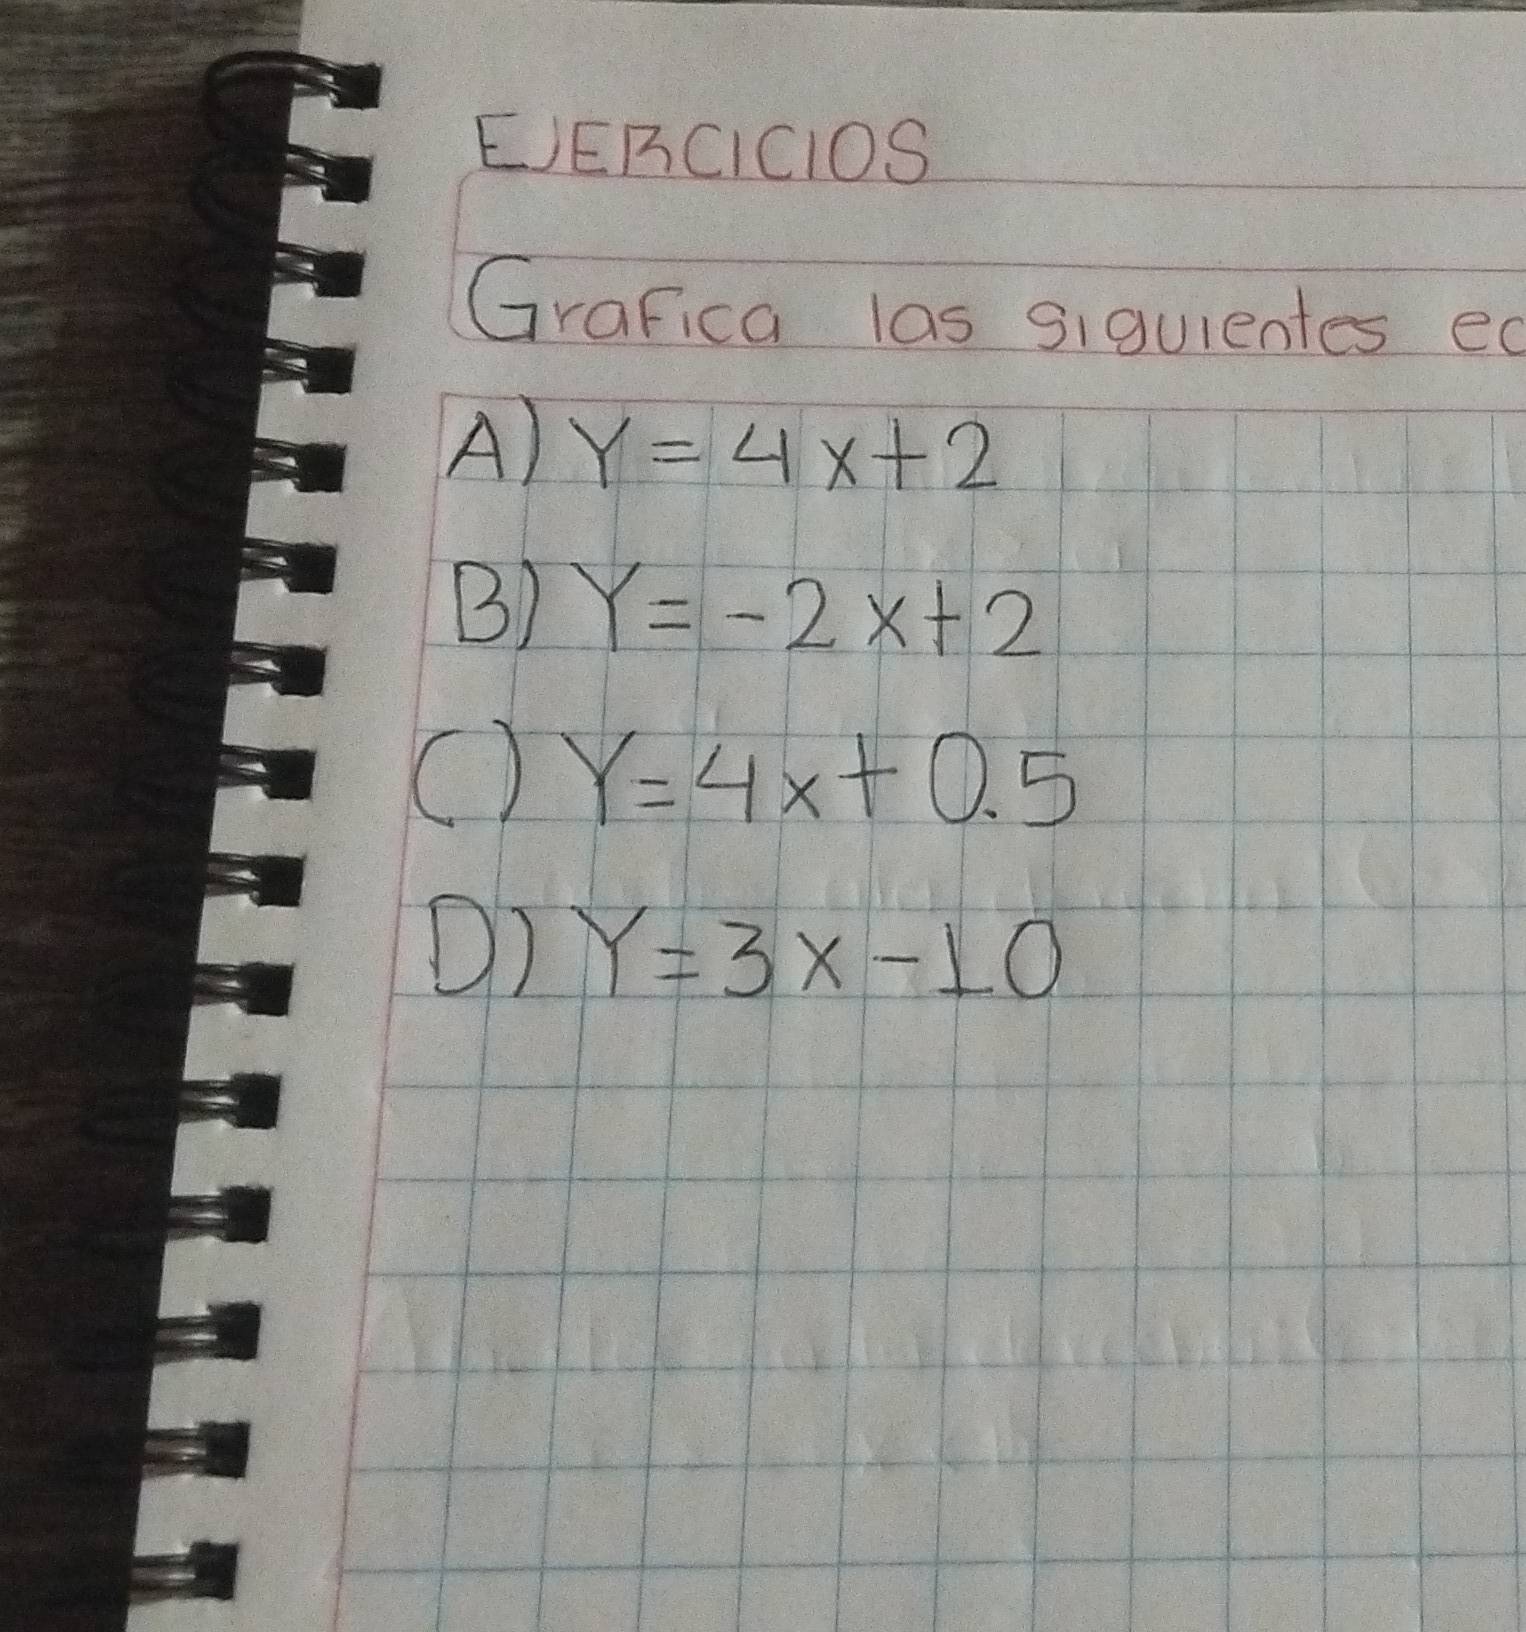 EJERCICIOS
Grafica las siguientes ec
A) Y = 4x+2
B) Y = -2x+2
C) Y = 4x + 0.5
D) Y = 3x - 10